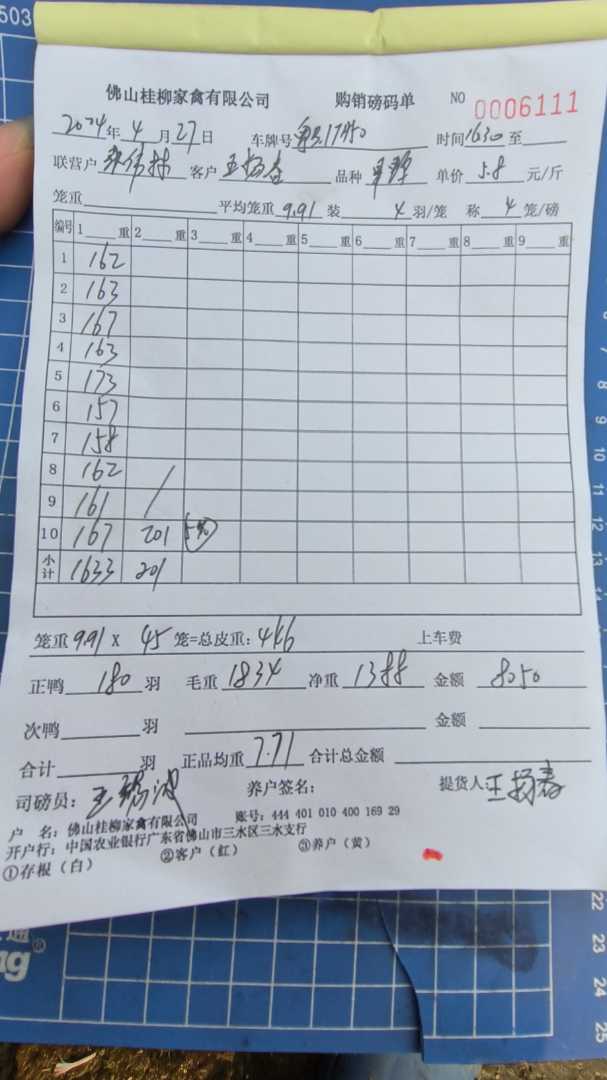 503
佛山桂柳家禽有限公司 购销磅码单 NO 0006111
2024年 4 月 27日 车牌号 时间1630至
联营户 客户 王杨春 品种 单价 5.8 元/斤
笼重 平均笼重 9.91 装 4 羽/笼 称 4 笼/磅
编号 1 重 2 重 3 重 4 重 5 重 6 重 7 重 8 重 9 重
1 162
2 163
3 167
4 163
5 173
6 157
7 158
8 162 /
9 161 /
10 167 201
小计 1633 201
笼重 9.91 X 45 笼=总皮重: 446 上车费
正鸭 180 羽 毛重 1834 净重 1388 金额 8050
次鸭 羽 金额
合计 羽 正品均重 7.71 合计总金额
司磅员: 养户签名: 提货人 王杨春
户 名: 佛山桂柳家禽有限公司 账号: 444 401 010 400 169 29
开户行: 中国农业银行广东省佛山市三水区三水支行
①存根(白) ②客户(红) ③养户(黄)
8
9
10
11
12
13
22
23
24
25
通®
ng